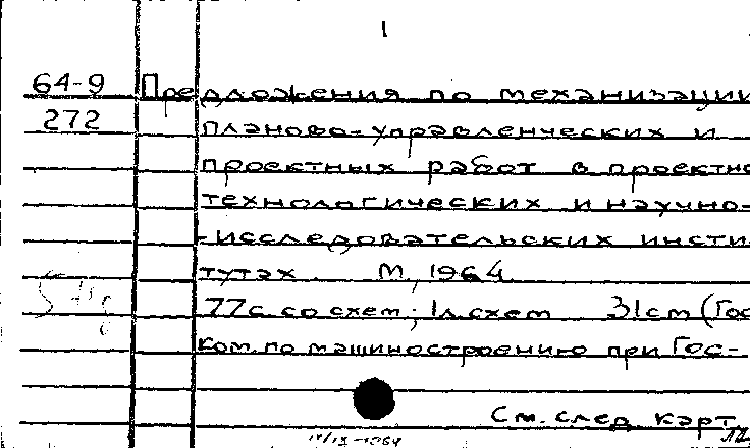 1
64-9 Предложения по механизации
272 планово-управленческих и
проектных работ в проектно
технологических и научно-
-исследовательских инсти
тутах М., 1964
77с. со схем.; 1л. схем 31см (Гос
ком. по машиностроению при Гос-
См. след. карт.